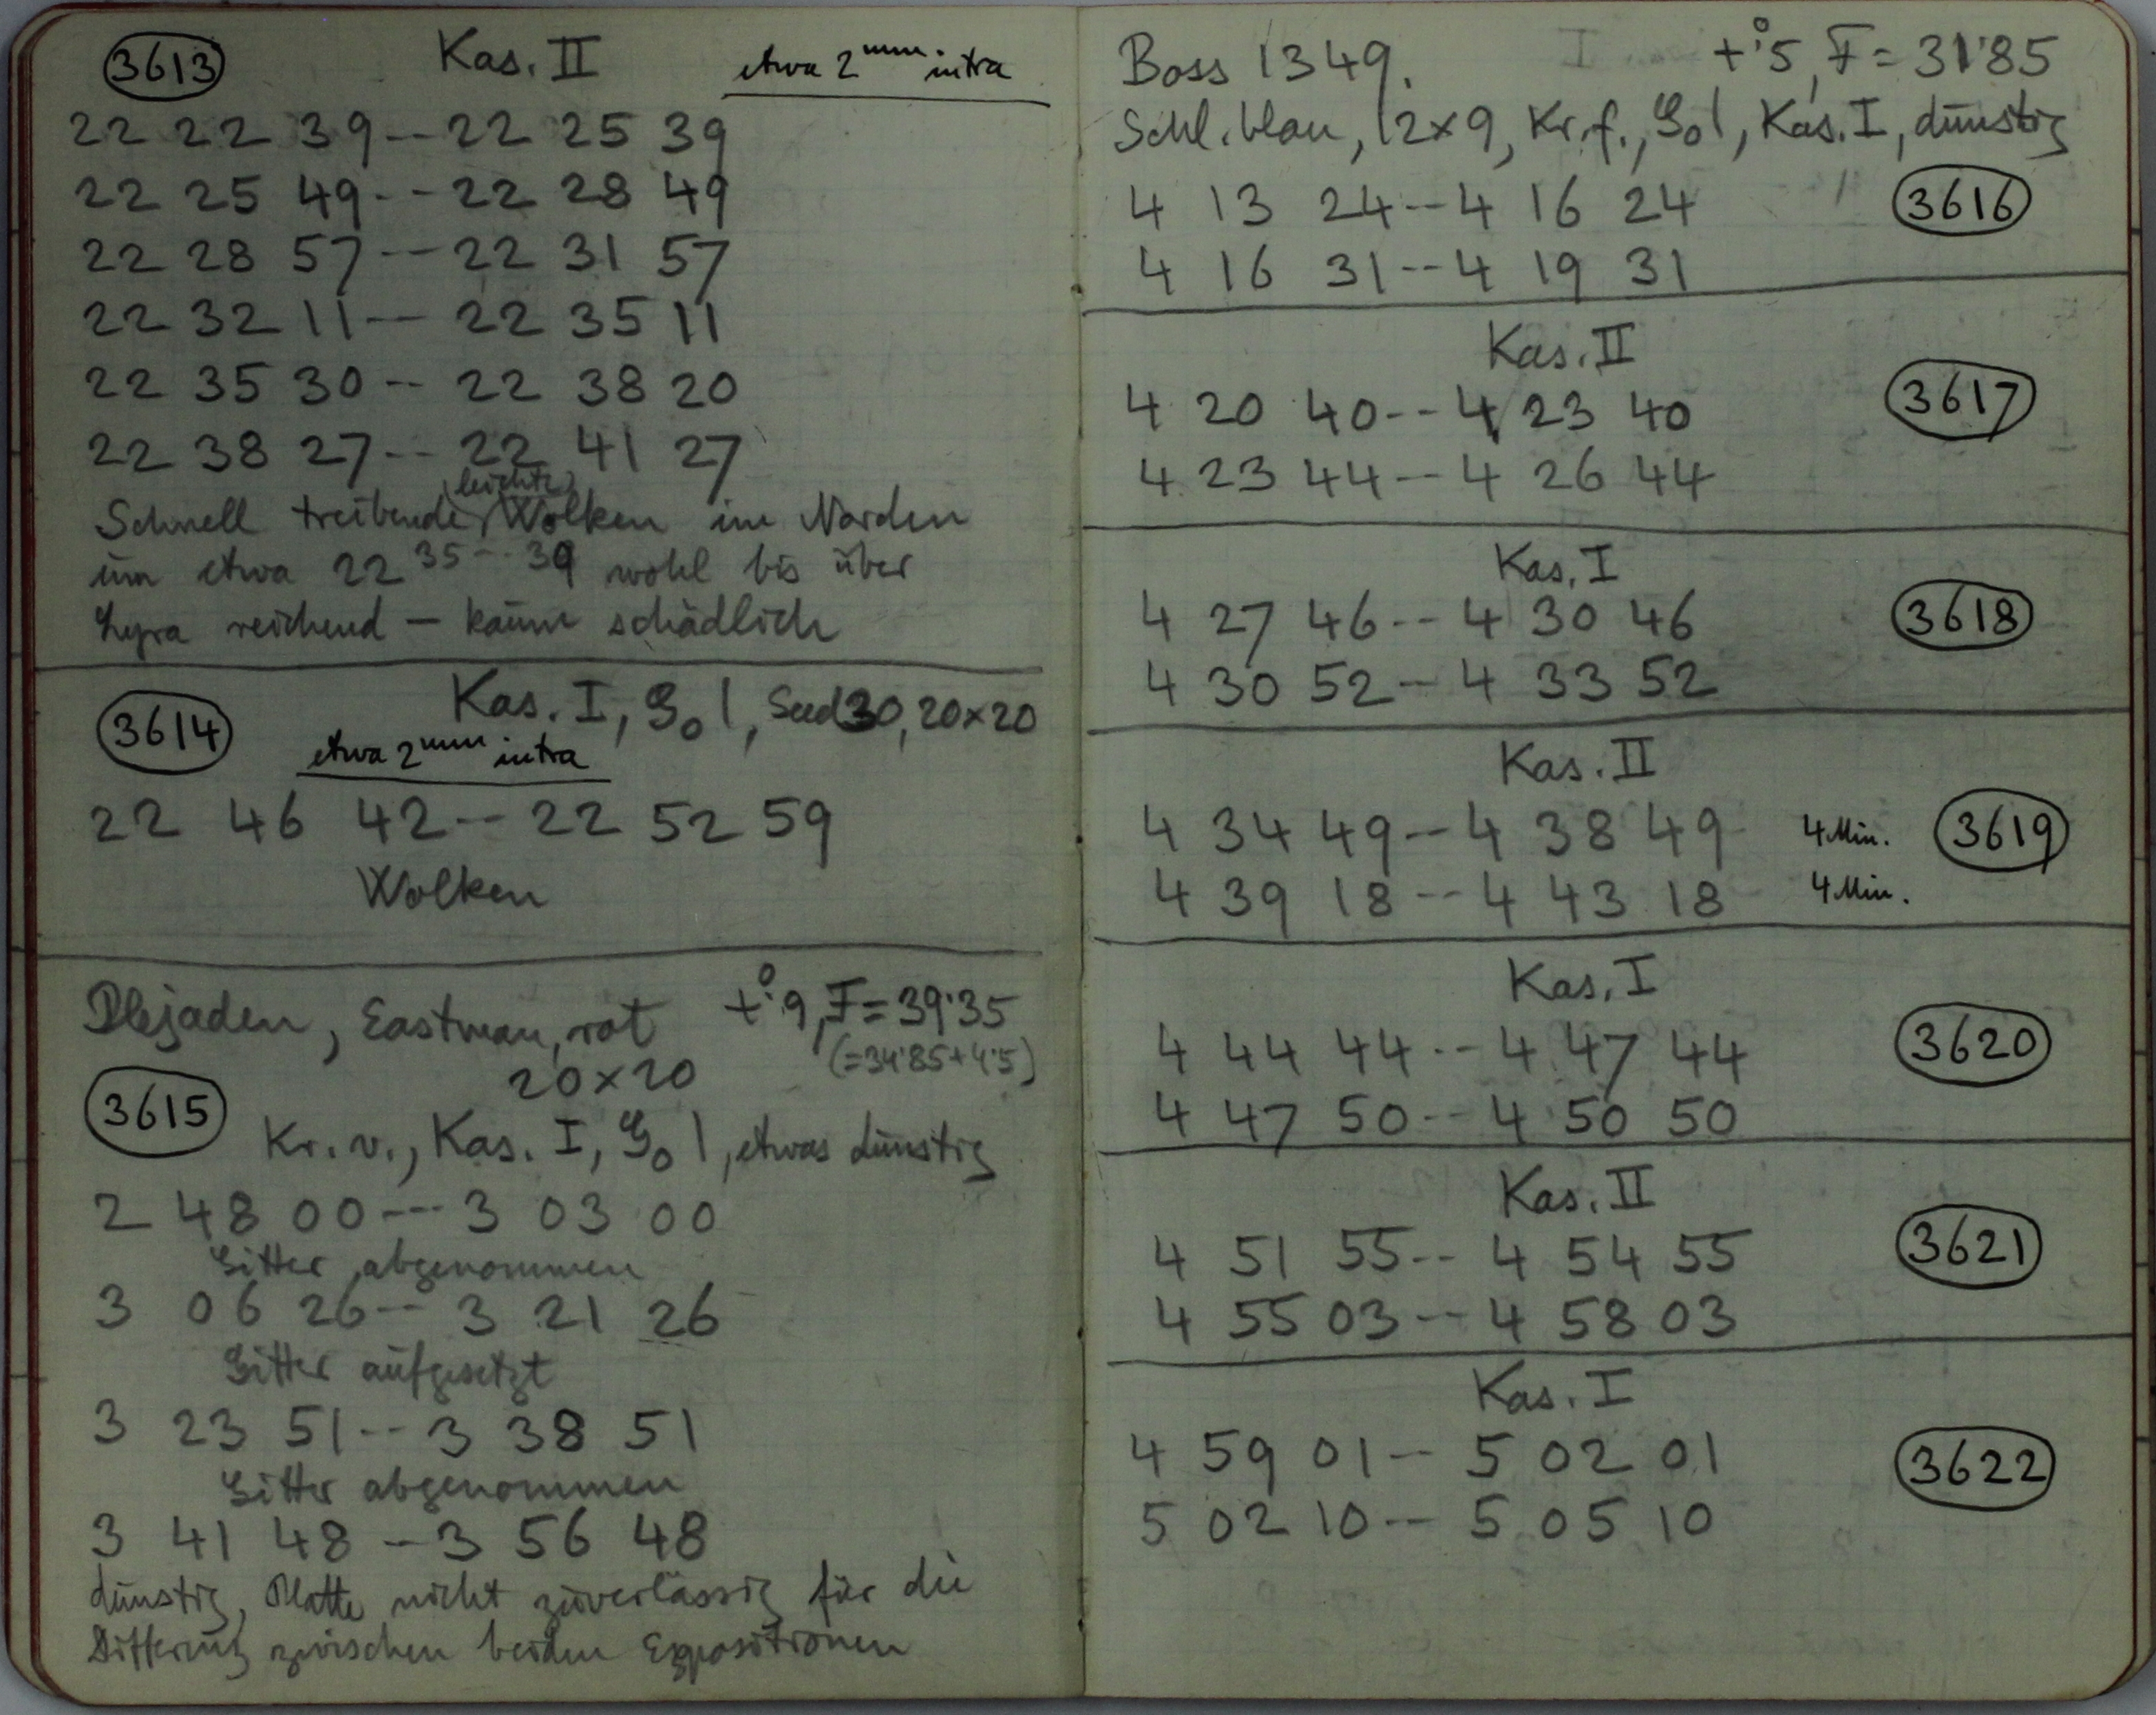 3613 Kas. II etwa 2mm intra
22 22 39 -- 22 25 39
22 25 49 -- 22 28 49
22 28 57 -- 22 31 57
22 32 11 -- 22 35 11
22 35 30 -- 22 38 20
22 38 27 -- 22 41 27
leichte
Schnell treibende Wolken im Norden
um etwa 22 35 -- 39 wohl bis über
Lyra reichend — kaum schädlich
3614 Kas. I, G0 1, Seed 30, 20×20
etwa 2mm intra
22 46 42 -- 22 52 59
Wolken
Plejaden, Eastman, rot +°.9, F = 39.35
20×20 (=34.85+4.5)
3615
Kr. v., Kas. I, G0 1, etwas dunstig
2 48 00 --- 3 03 00
Gitter abgenommen
3 06 26 -- 3 21 26
Gitter aufgesetzt
3 23 51 -- 3 38 51
Gitter abgenommen
3 41 48 -- 3 56 48
dunstig, Platte nicht zuverlässig für die
Differenz zwischen beiden Expositionen
Boss 1349. +°.5, F = 31.85
Schl. blau, 12×9, Kr. f., G0 1, Kas. I, dunstig
4 13 24 -- 4 16 24 3616
4 16 31 -- 4 19 31
Kas. II
4 20 40 -- 4 23 40 3617
4 23 44 -- 4 26 44
Kas. I
4 27 46 -- 4 30 46 3618
4 30 52 -- 4 33 52
Kas. II
4 34 49 -- 4 38 49 4 Min. 3619
4 39 18 -- 4 43 18 4 Min.
Kas. I
4 44 44 -- 4 47 44 3620
4 47 50 -- 4 50 50
Kas. II
4 51 55 -- 4 54 55 3621
4 55 03 -- 4 58 03
Kas. I
4 59 01 -- 5 02 01 3622
5 02 10 -- 5 05 10